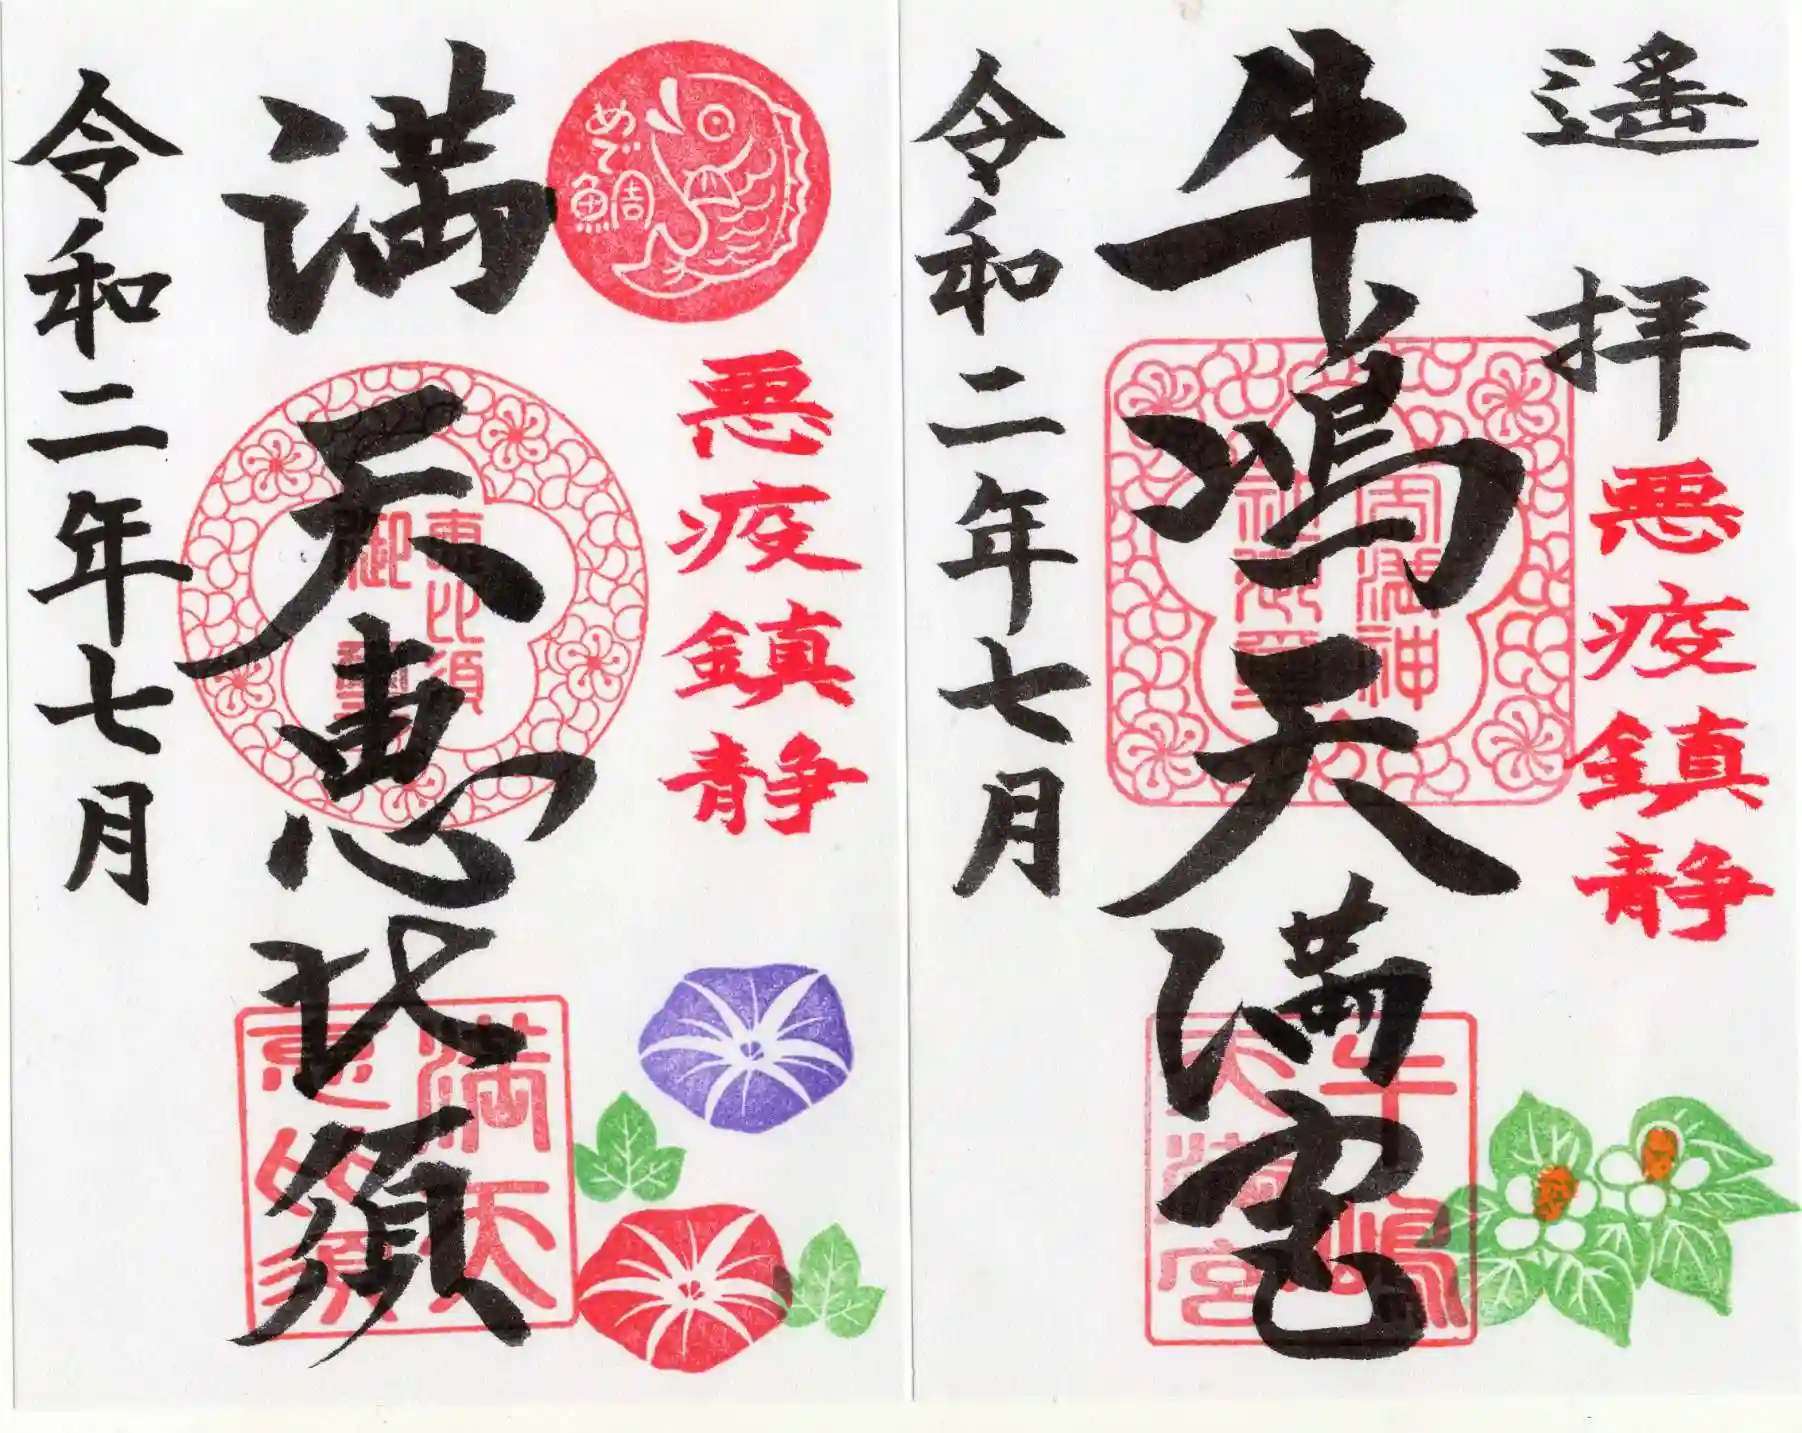 遙拝
悪疫鎮静
牛嶋天満宮
天満神
社御璽
牛嶋
天満宮
令和二年七月
めで鯛
悪疫鎮静
満天恵比須
恵比須
御璽
満天
恵比須
令和二年七月